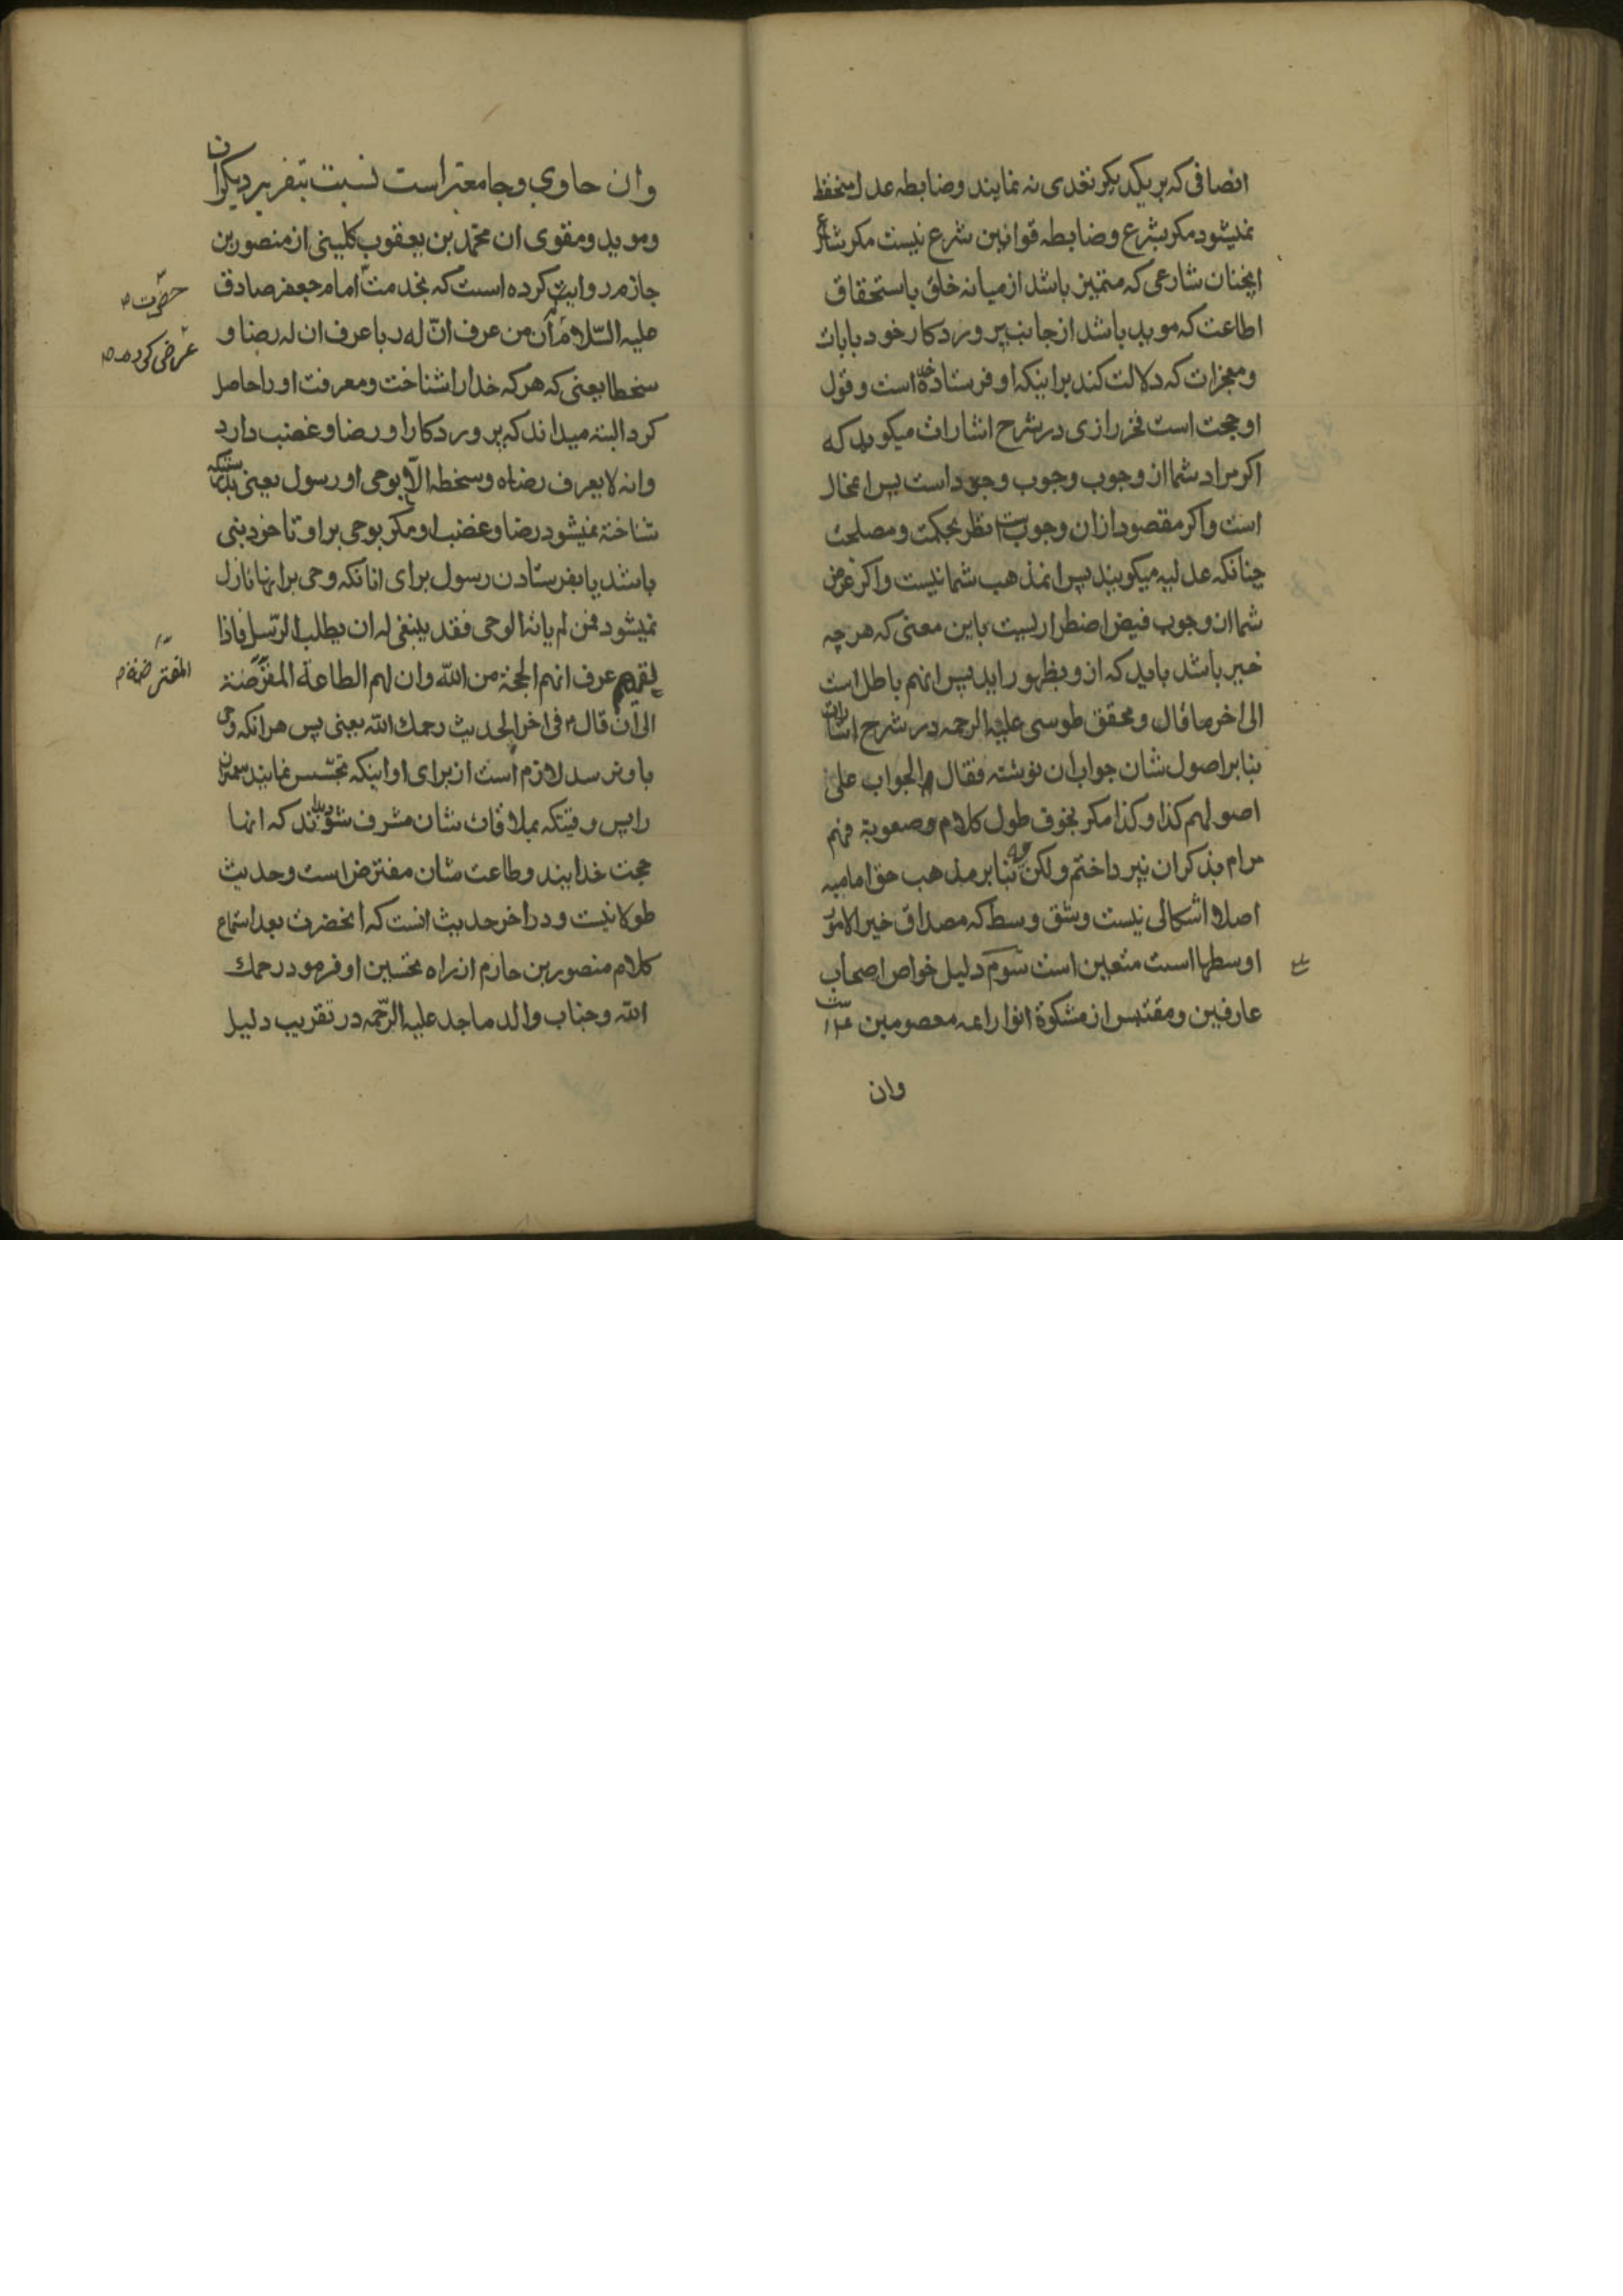 انصافی که بر یکدیکر تعدی نه نمایند وضابطه عدل منحفظ
نمیشود مکر بشرع وضابطه قوانین شرع نیست مکر شارع
اینچنان شارعی که متمیز باشد از میانه خلق باستحقاق
اطاعت که موید باشد از جانب پروردکار خود بایات
ومعجزات که دلالت کند بر اینکه او فرستاده خداست وقول
او حجت است فخر رازی در شرح اشارات میکوید که
اکر مراد شما از وجوب وجوب وجود است پس این محال
است واکر مقصود از ان وجوبست نظر بحکمت ومصلحت
چنانکه عدلیه میکویند پس این مذهب شما نیست واکر غرض
شما از وجوب فیض اضطراریست باین معنی که هر چه
خیر باشد باید که از و بظهور اید پس انهم باطل است
الی اخر ما قال ومحقق طوسی علیه الرحمه در شرح اشارات
بنابر اصول شان جواب ان نوشته فقال الجواب علی
اصولهم کذا وکذا مکر بخوف طول کلام وصعوبة فهم
مرام بذکر ان نپرداختم ولکن بنابر مذهب حق امامیه
اصلا اشکالی نیست وشق وسط که مصداق خیر الامور
اوسطها است متعین است سوم دلیل خواص اصحاب
عارفین ومقتبس از مشکوة انوار ائمه معصومین است
وان
وان حاوی وجامعتر است نسبت بتقریر دیکران
وموید ومقوی ان محمد بن یعقوب کلینی از منصور بن
حازم روایت کرده است که بخدمت امام جعفر صادق
حضرت
علیه السلام ان من عرف ان له ربا عرف ان له رضا و
عرض کردم
سخطا یعنی که هر که خدا را شناخت ومعرفت او را حاصل
کرد البته میداند که پروردکار او رضا وغضب دارد
وانه لا یعرف رضاه وسخطه الا بوحی او رسول یعنی بدرستیکه
شناخته نمیشود رضا وغضب او مکر بوحی بر او تا خود نبی
باشد یا بفرستادن رسول برای انانکه وحی بر انها نازل
نمیشود فمن لم یاته الوحی فقد ینبغی له ان یطلب الرسل فاذا
لقیهم عرف انهم الحجة من الله وان لهم الطاعة المفترضة
المفترضة
الی ان قال فی اخر الحدیث رحمك الله یعنی پس هر انکه وحی
باو نرسد لازم است از برای او اینکه تجسس نماید پیغمبران
را پس وقتیکه بملاقات شان مشرف شود بداند که انها
حجت خدایند وطاعت شان مفترض است وحدیث
طولانیست ودر اخر حدیث انست که انحضرت بعد استماع
کلام منصور بن حازم از راه تحسین او فرمود رحمك
الله وجناب والد ماجد علیه الرحمه در تقریب دلیل